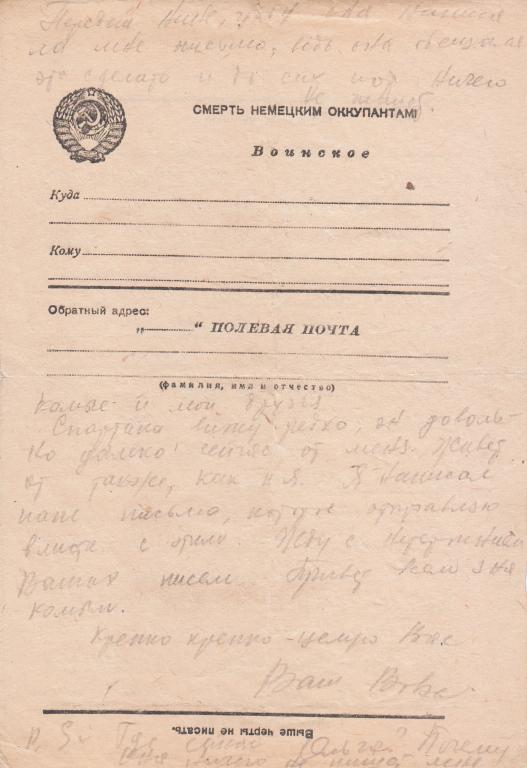 Передай Нине, чтоб она написа
ла мне письмо, ведь она обещала
это сделать и до сих пор ничего
не пишет.
СМЕРТЬ НЕМЕЦКИМ ОККУПАНТАМ!
Воинское
Куда
Кому
Обратный адрес:
„ “ ПОЛЕВАЯ ПОЧТА
(фамилия, имя и отчество)
комые и мои друзья
Спартака вижу редко, он доволь-
но далеко сейчас от меня. Живет
он также, как и я. Я написал
папе письмо, которое отправляю
вместе с этим. Жду с нетерпением
Ваших писем. Привет всем зна
комым.
Крепко крепко целую Вас
Ваш Вова
Выше черты не писать.
P. S. Где сейчас Почему
ничего не пишет мне